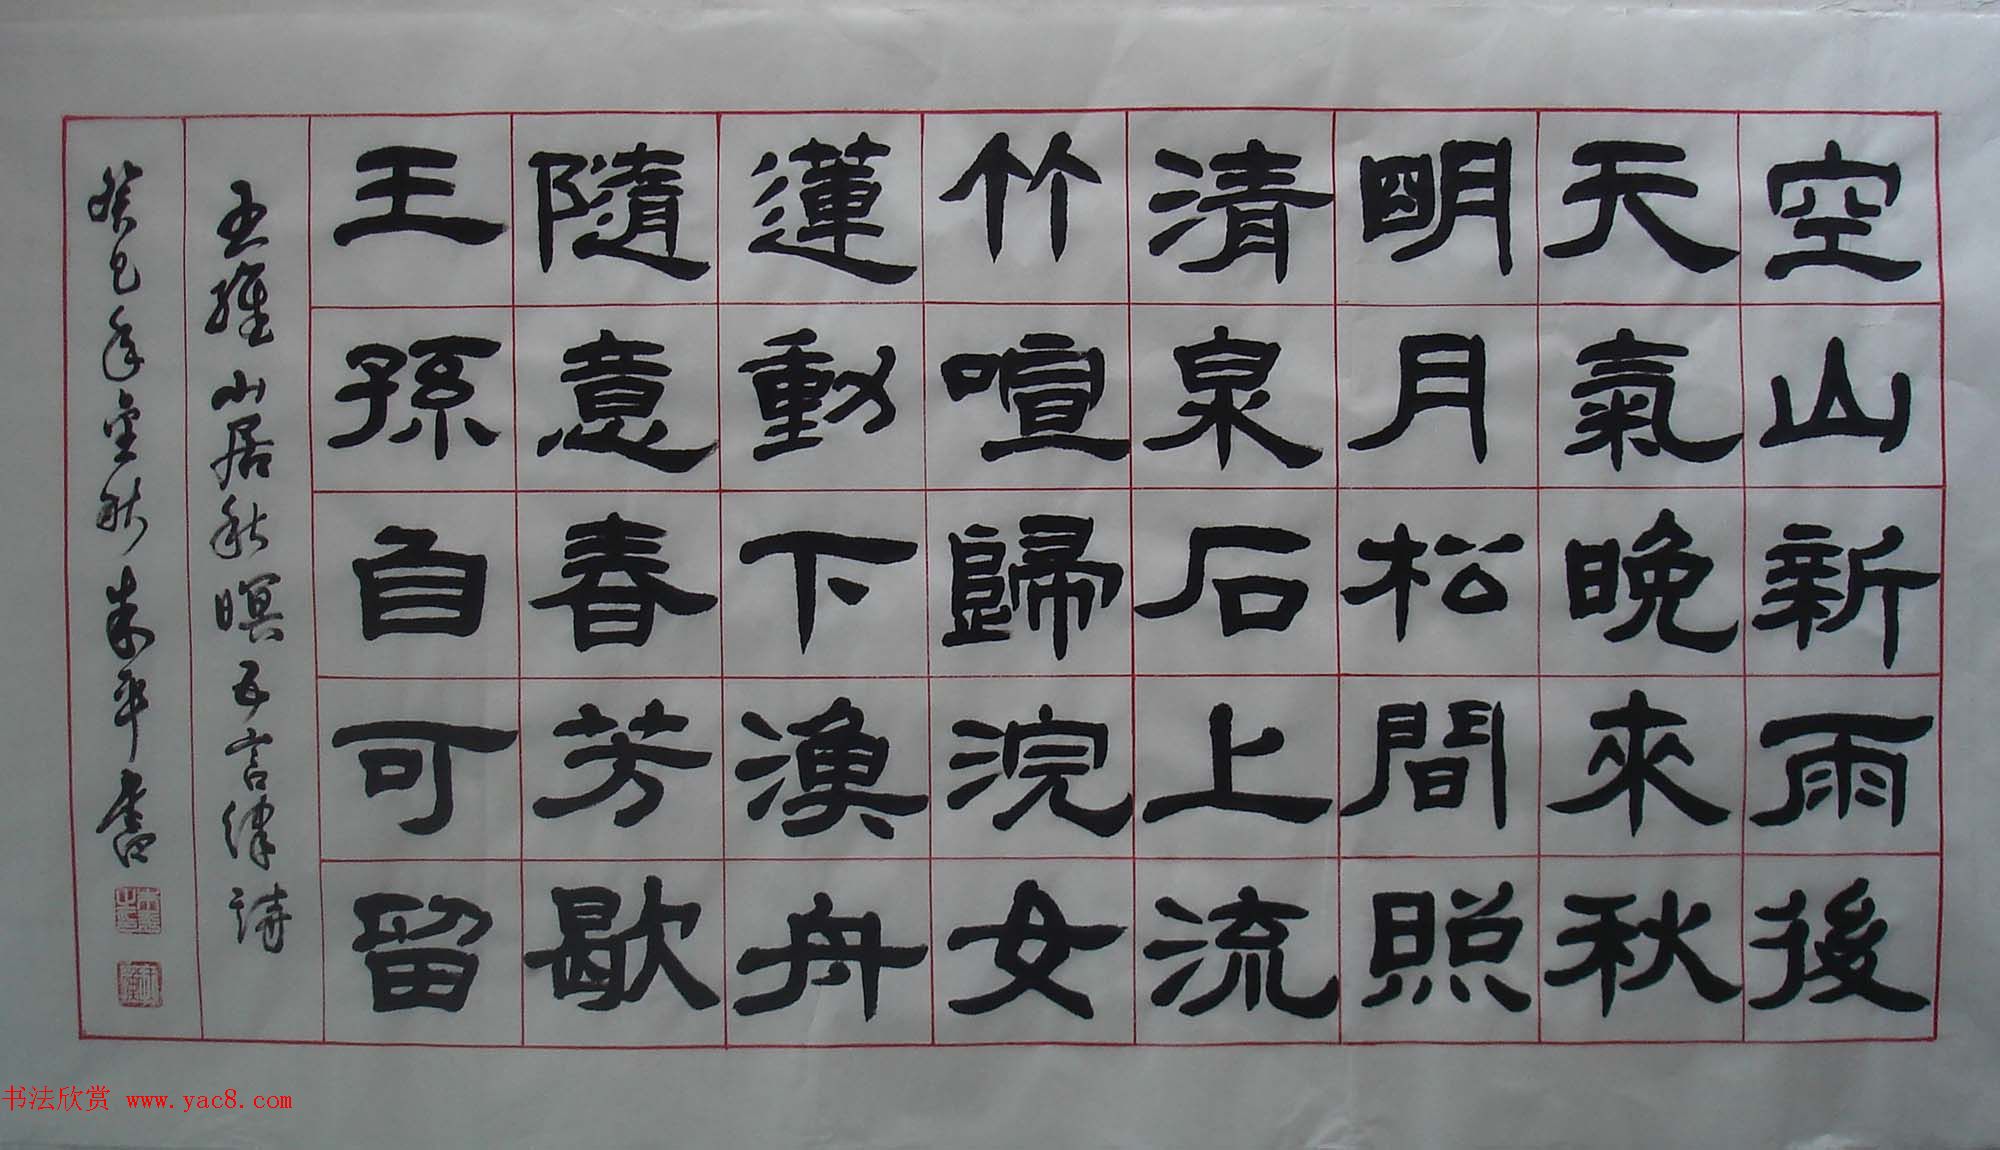 空山新雨後
天氣晚來秋
明月松間照
清泉石上流
竹喧歸浣女
蓮動下漁舟
隨意春芳歇
王孫自可留
王維山居秋暝五言律詩
癸巳年金秋朱平書
书法欣赏 www.yac8.com